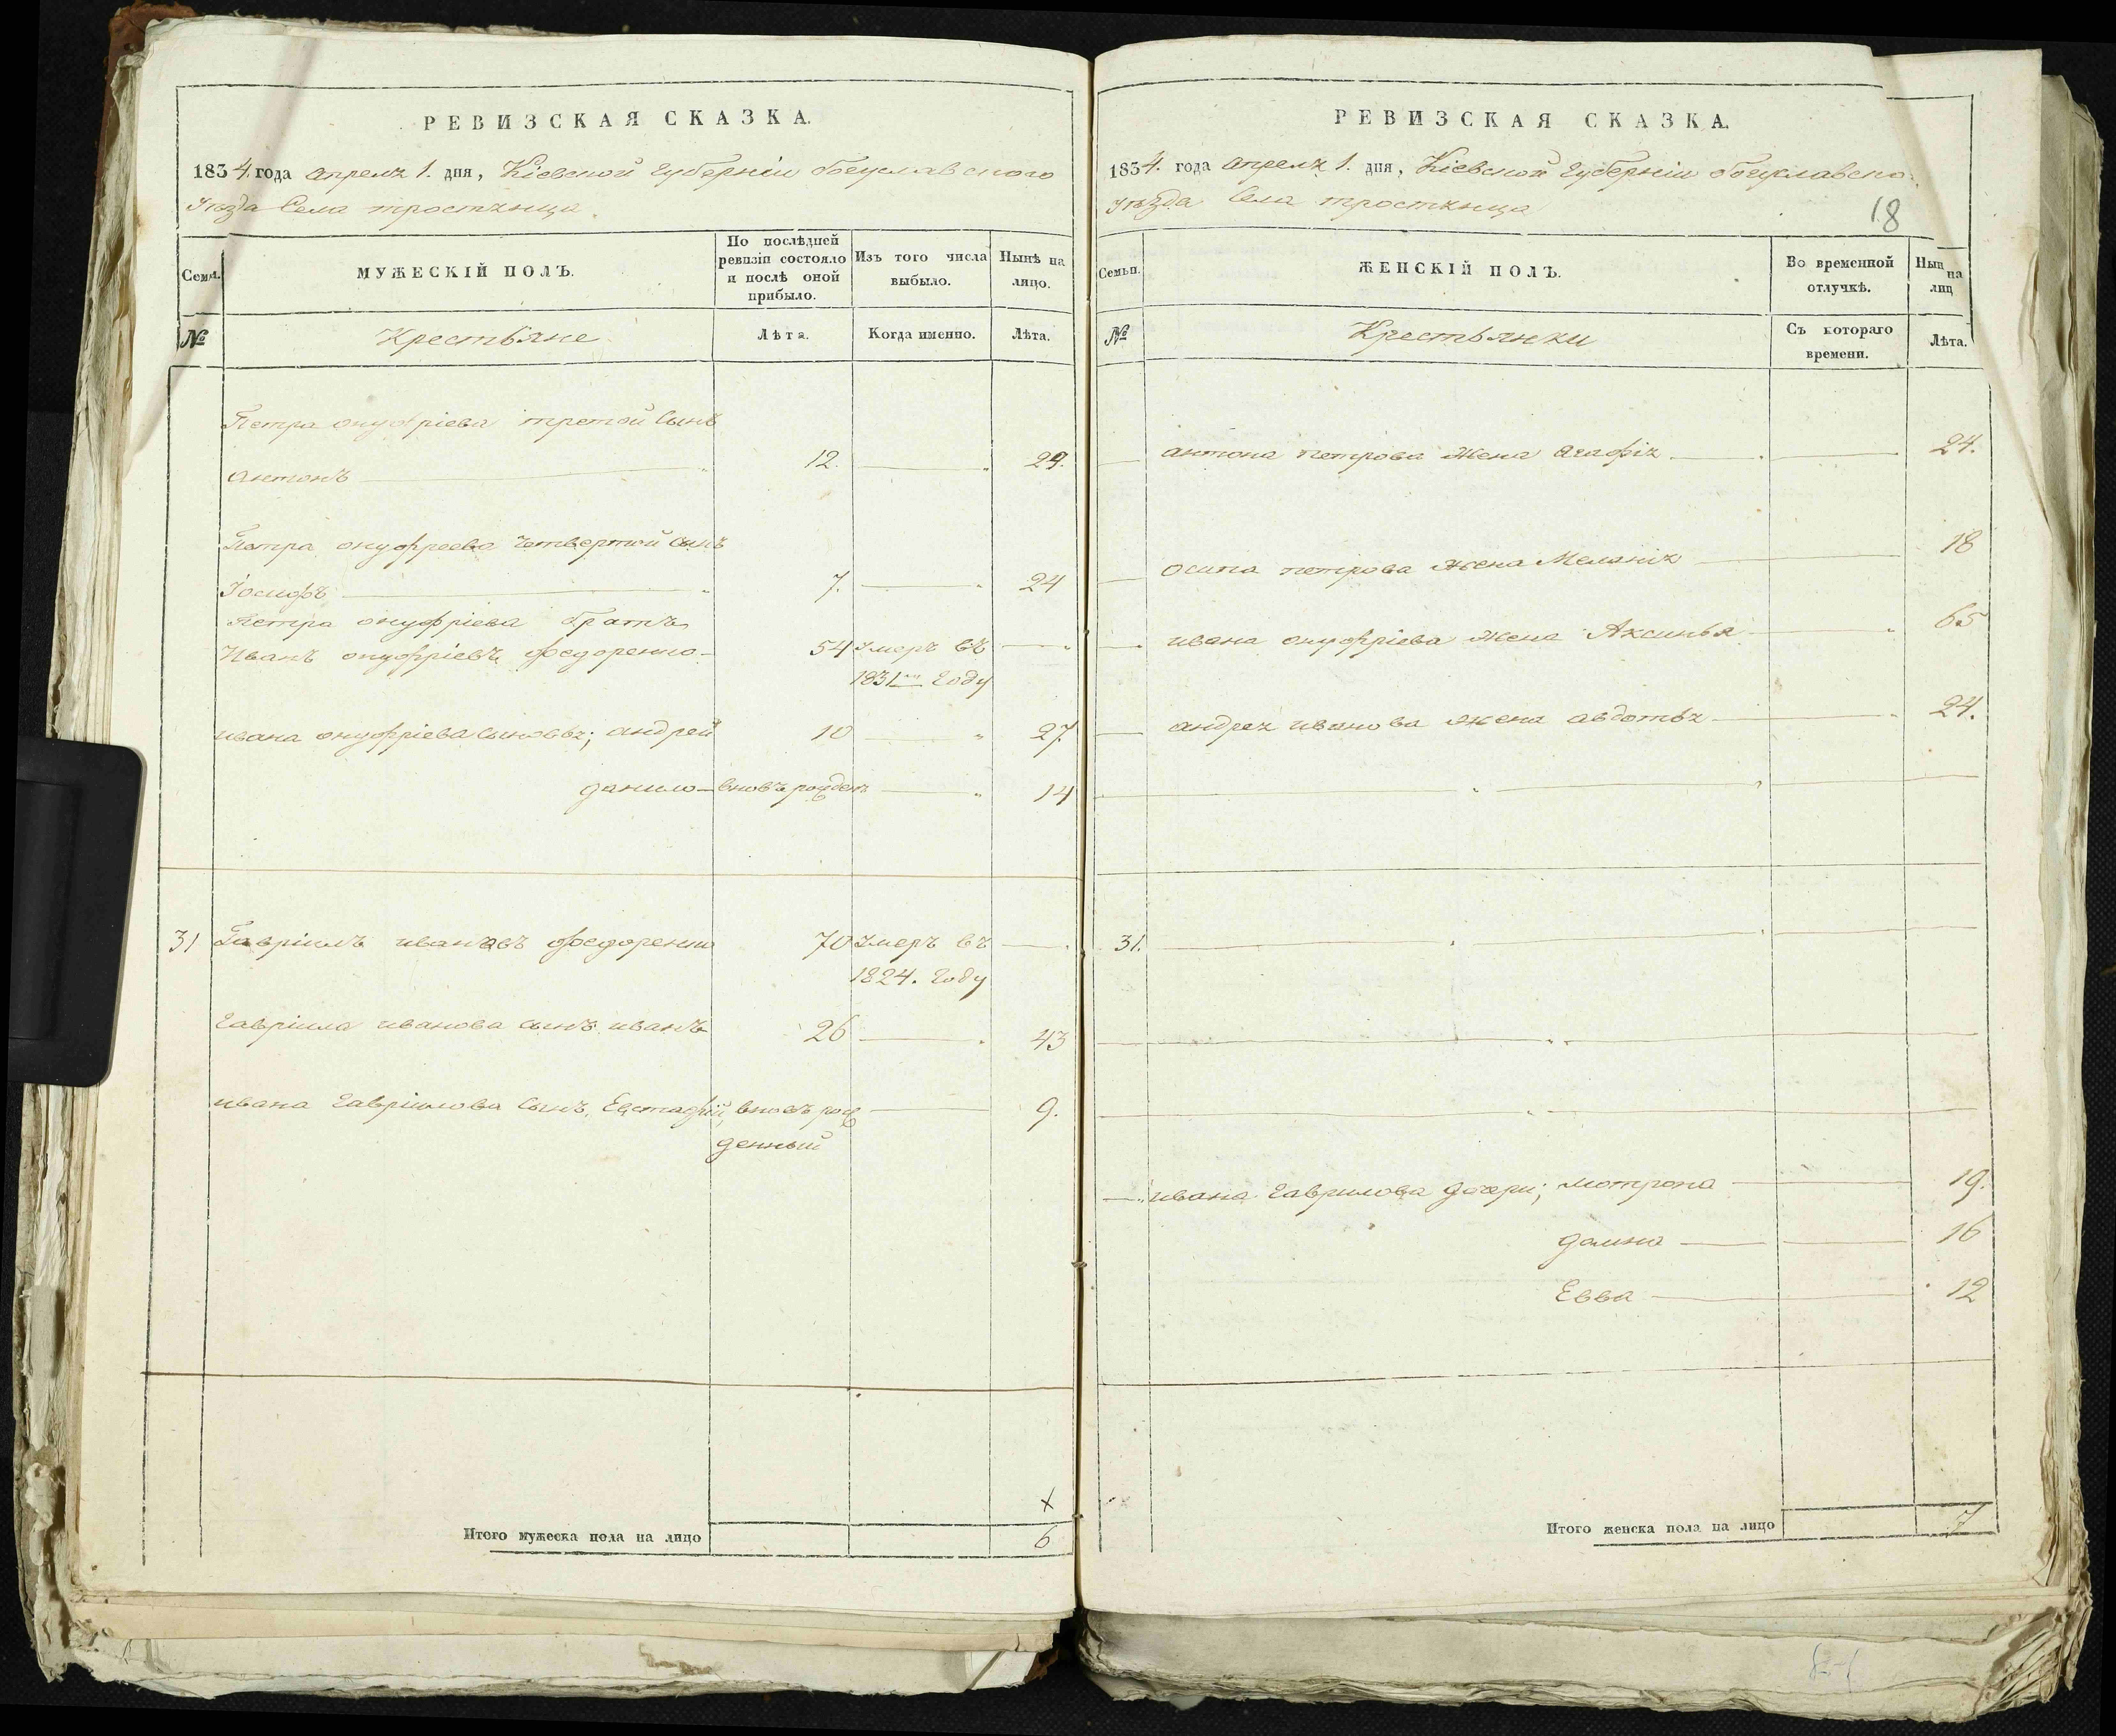 РЕВИЗСКАЯ СКАЗКА.
1834. года апреля 1. дня, Кіевской губерніи богуславского
уѣзда Села тростянца
Семьи.
МУЖЕСКІЙ ПОЛЪ.
По послѣдней ревизіи состояло и послѣ оной прибыло.
Изъ того числа выбыло.
Нынѣ на лицо.
№
Крестьяне
Лѣта.
Когда именно.
Лѣта.
Петра онуфріева третой Сынъ
антонъ 12. 29.
Петра онуфреева Четвертой Сынъ
Іосифъ 7. 24
Петра онуфріева братъ
Иванъ онуфріевъ федоренко 54 умеръ въ
1831мъ Году
ивана онуфріева Сыновья; андрей 10 27.
данило вновь рожден 14
31 Гавріилъ ивановъ федоренко 70 умеръ въ
1824. Году
гавріила иванова сынъ иванъ 26 43
ивана гавріилова Сынъ, Евстафій, вновь рож 9.
денный
х
Итого мужеска пола на лицо 6
РЕВИЗСКАЯ СКАЗКА.
1834. года апреля 1. дня, Кіевской губерніи богуславско.
уѣзда Села тростянца
18
Семьи.
ЖЕНСКІЙ ПОЛЪ.
Во временной отлучкѣ.
Нын на лиц
№
Крестьянки
Съ котораго времени.
Лѣта.
антона петрова жена Агафія 24.
осипа петрова жена Меланія 18
ивана онуфріева жена Аксинья 65
андрея иванова жена авдотья 24.
31.
ивана гаврилова дочери; мотрона 19.
домна 16
Евва 12
Итого женска пола на лицо 7